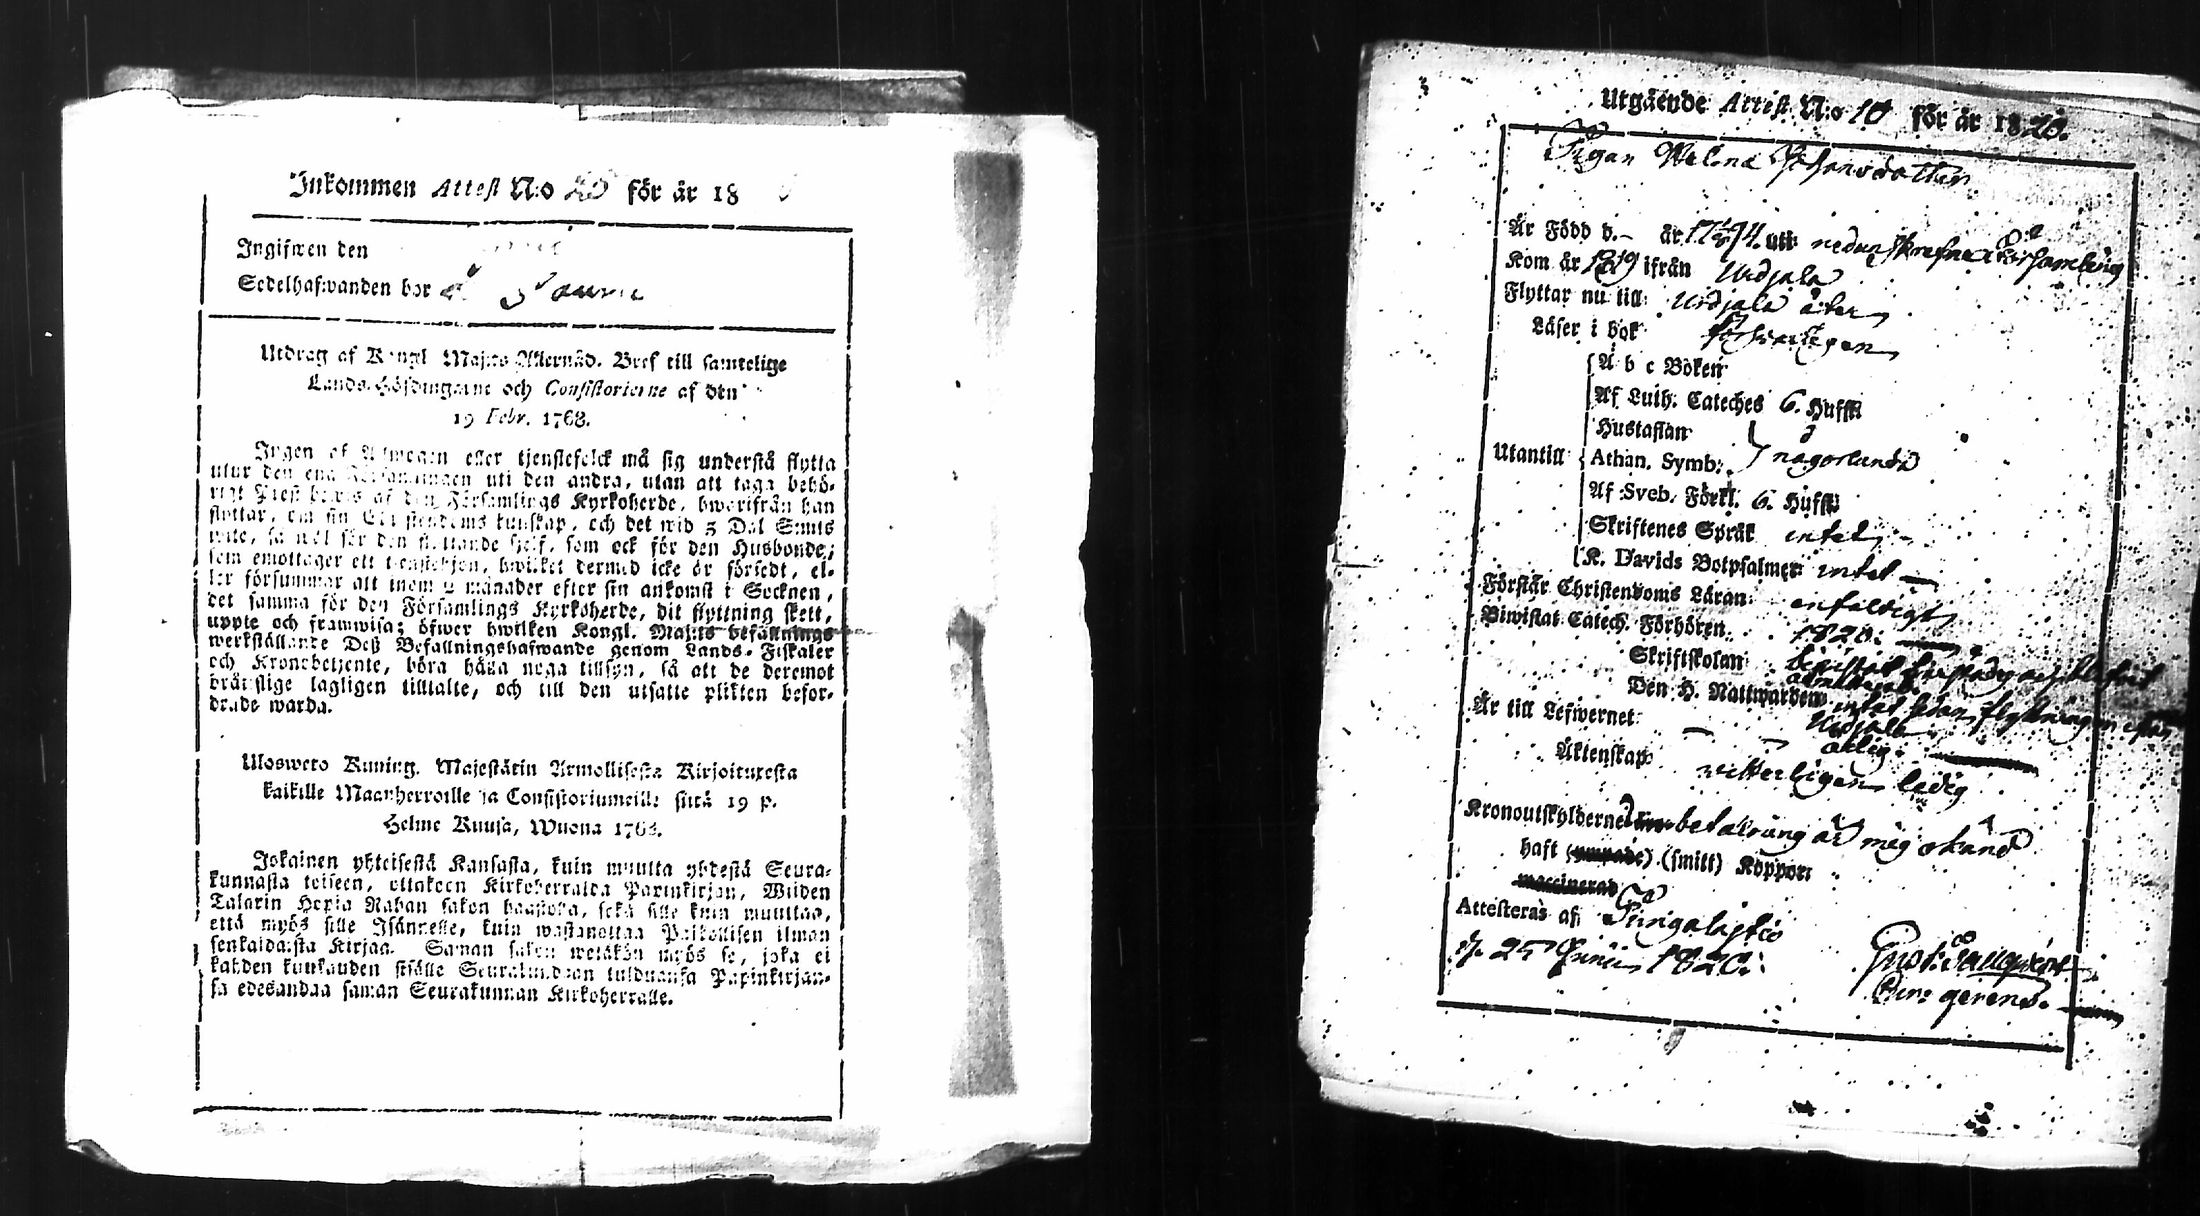 Inkommen Attest N:o 25 för år 18
Ingifwen den
Sedelhafwanden bor
Utdrag af Kongl Maj:ts Allernåd. Bref till samtelige
Lands-Höfdingarne och Consistorierne af den
19 Febr. 1768.
Ingen af Allmogen eller tjenstefolck må sig understå flytta
utur den ena Församlingen uti den andra, utan att taga behö-
rigt Prest bewis af den Församlings Kyrkoherde, hworifrån han
flyttar, om sin Christendoms kunskap, och det wid 5 Dal. Smts
wite, så wäl för den flyttande sjelf, som ock för den Husbonde,
som emottager ett tjenstehjon, hwilket dermed icke är försedt, el-
ler försummar att inom 2 månader efter sin ankomst i Socknen,
det samma för den Församlings Kyrkoherde, dit flyttning skett,
uppte och framwisa; öfwer hwilken Kongl. Maj:ts befallnings
werkställande Deß Befallningshafwande genom Lands-Fiskaler
och Kronobetjente, böra hålla noga tillsyn, så att de deremot
brätslige lagligen tilltalte, och till den utsatte plikten befor-
drade warda.
Ulosweto Kuning. Majestätin Armollisesta Kirjoituxesta
kaikille Maanherroille ja Consistoriumeille siitä 19 p.
Helme Kuusa, Wuona 1768.
Jokainen yhteisestä Kansasta, kuin muutta yhdestä Seura-
kunnasta toiseen, ottakoon Kirkoherralda Papinkirjan, Wiiden
Talarin Hopia Rahan sakon haastolla, sekä sille kuin muuttaa,
että myös sille Isännelle, kuin wastanottaa Palkollisen ilman
senkaldaista Kirjaa. Saman sakon wetäkön myös se, joka ei
kahden kuukauden sisälle Seurakundaan tulduansa Papinkirjan-
sa edesandaa saman Seurakunnan Kirkoherralle.
Utgående Attest N:o 10 för år 1820.
Pigan Helena Johansdotter
Är Född d. – år 1794. uti nedanskrefne Församling
Kom år 1819 ifrån Urdjala
Flyttar nu till Urdjala åter
Läser i bok försvarligen
A b c Boken
Af Luth. Cateches 6. Hufst:
Hustaflan
Utantill Athan. Symb. någorlunda
Af Sveb. Förkl. 6. Hufst:
Skriftenes Språk intet
K. Davids Botpsalmer intet
Förstår Christendoms Läran enfaldigt
Biwistat Catech. Förhören 1820.
Skriftskolan
Den H. Nattwarden intet sedan flyttningen ifrån
Urdjala
Är till Lefwernet – – ärlig
Äktenskap witterligen ledig
Kronoutskylderne betalning är mig okänd
haft (smitt) Koppor
Attesteras af Pungalaitio
d. 25 Junii 1820.
Gust:
Cur: gerens.